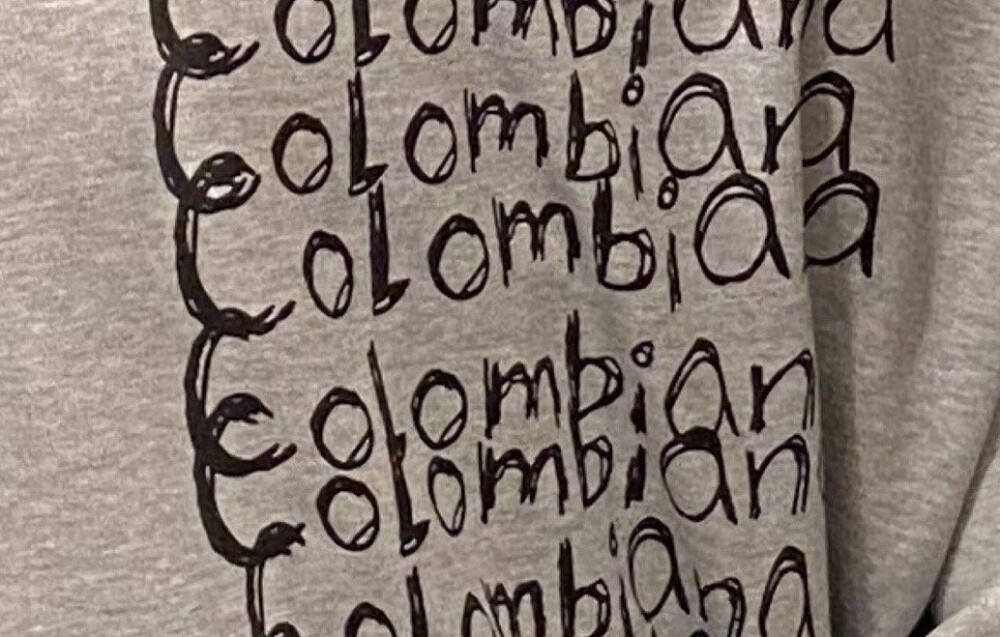 Colombiana
Colombiana
Colombiaa
Colombian
Colombian
Colombiana